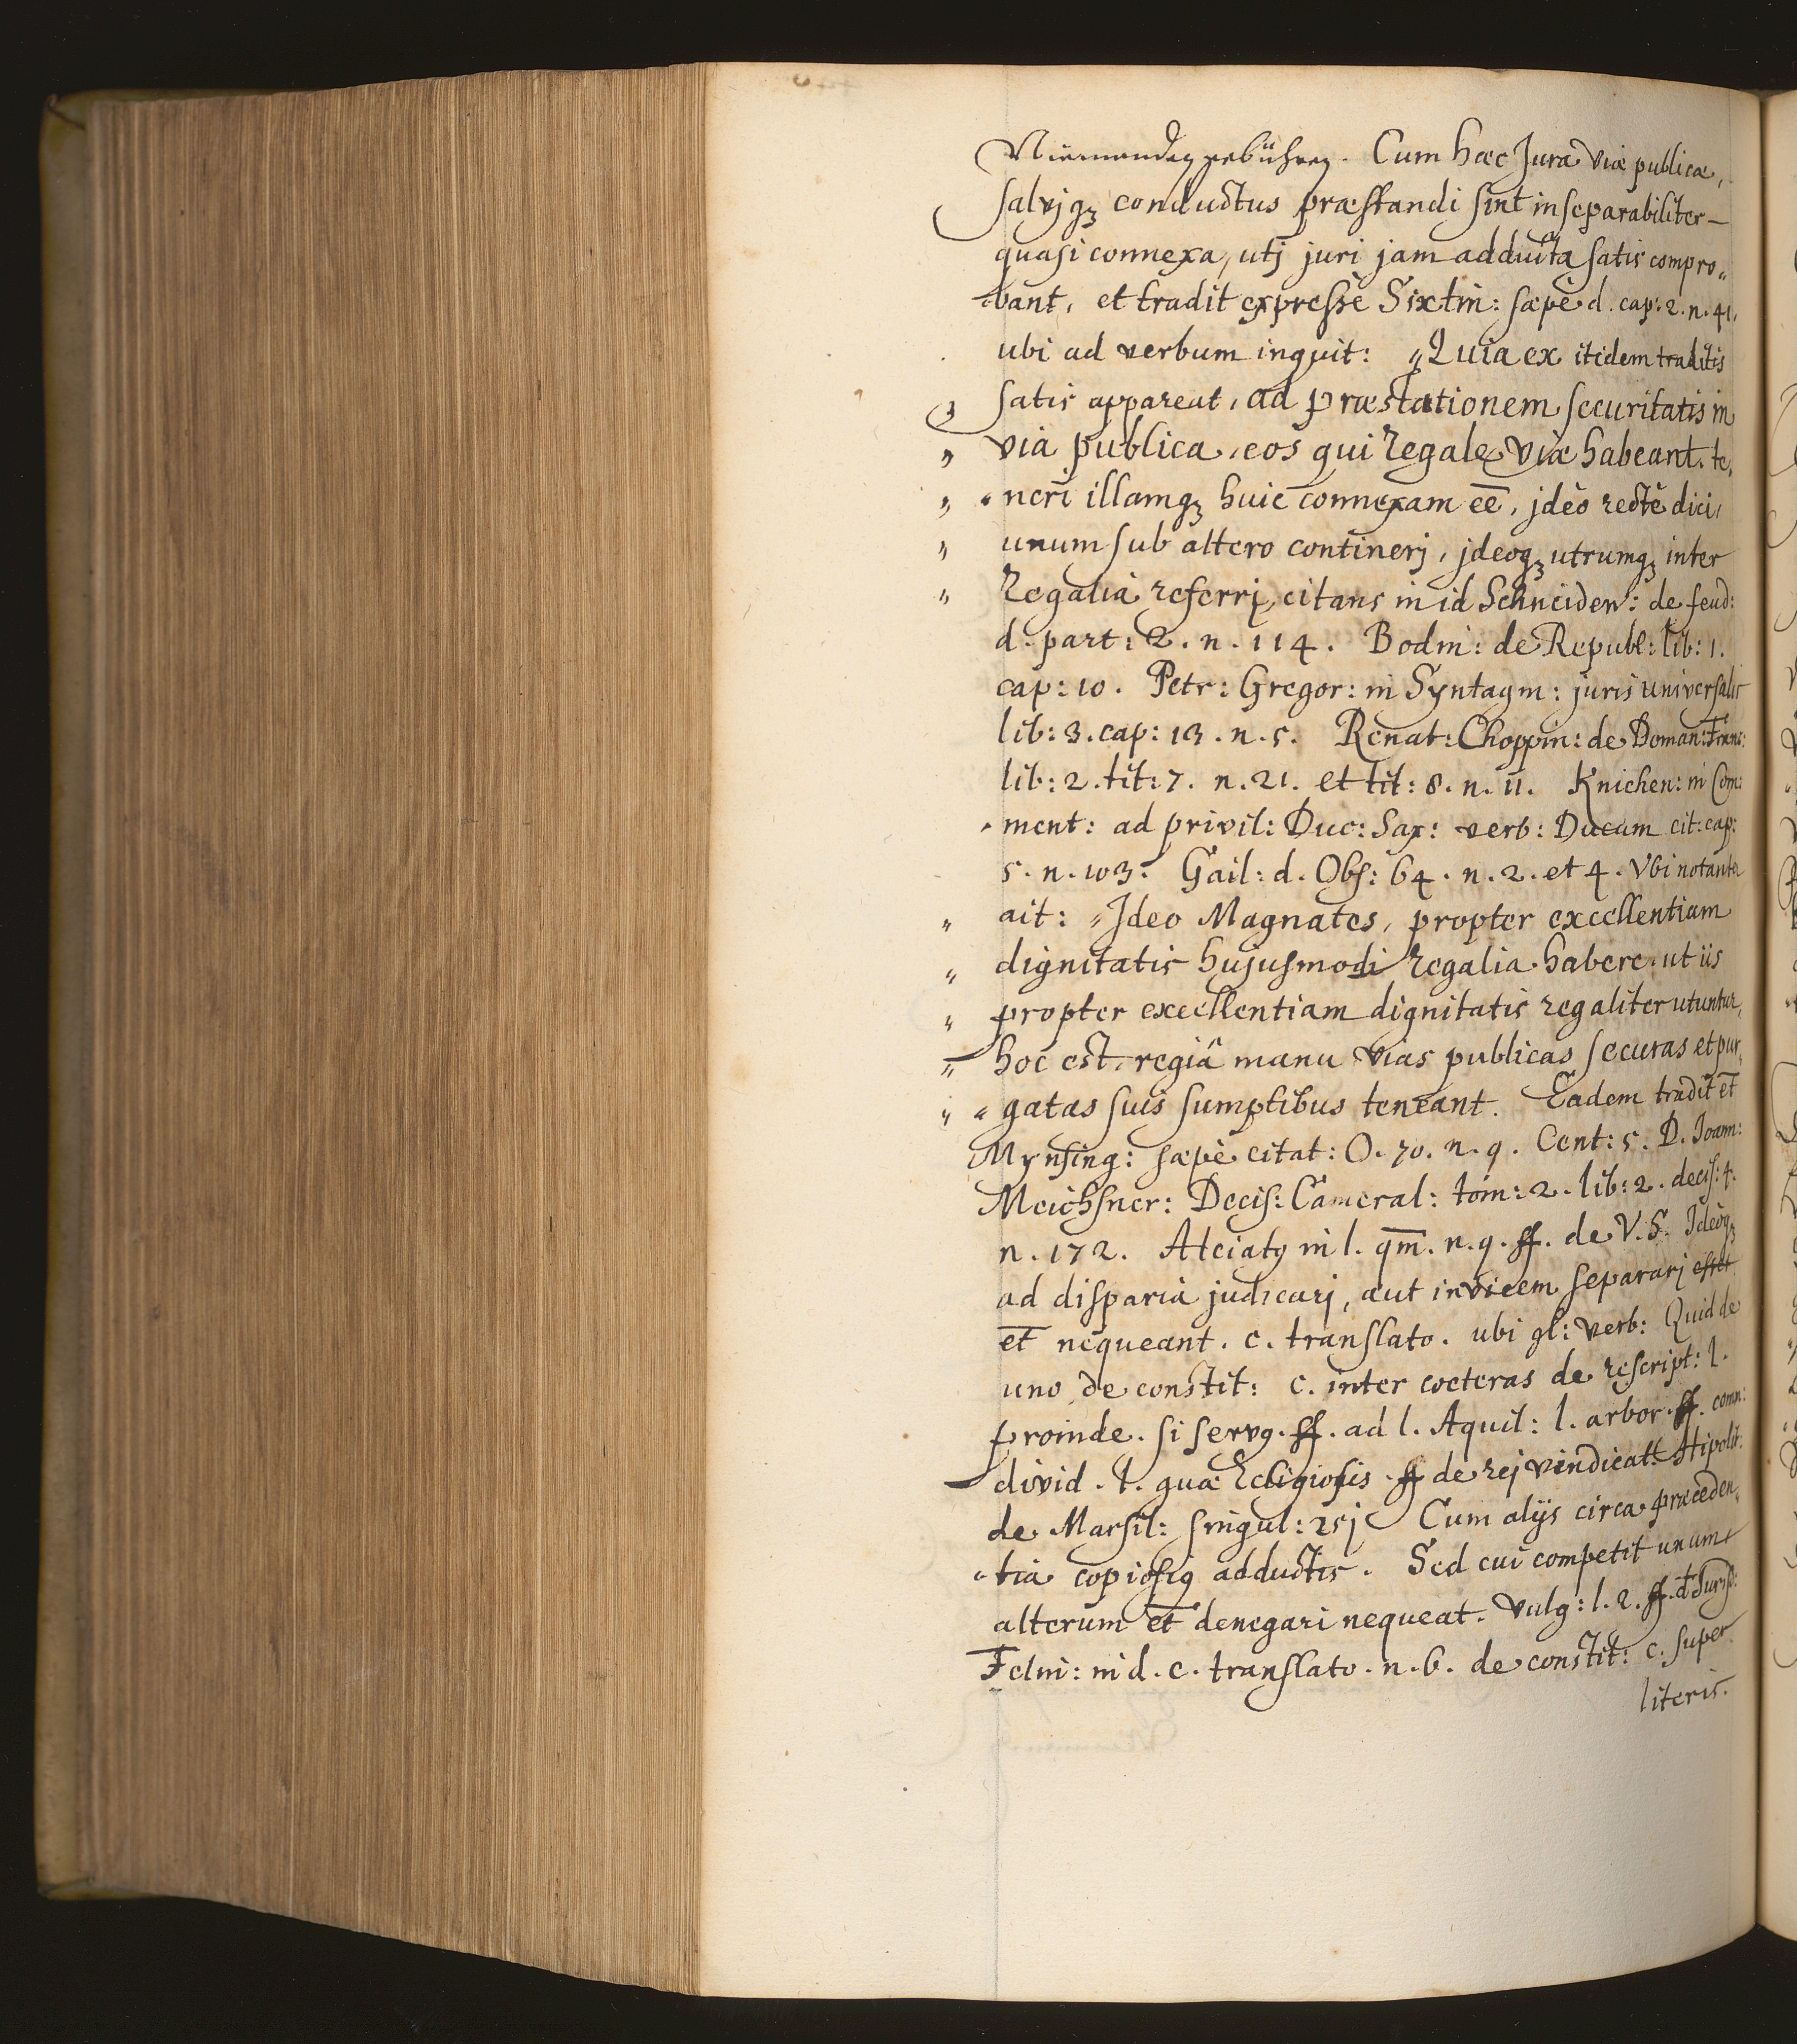 Niemanden gebühren. Cum hæc Jura viæ publicæ,
salvjqȝ conductus præstandi sint inseparabiliter
quasi connexa, utj juri jam adducta satis compro„
bant, et tradit expresse Sixtin: sæpè d. cap: 2. n. 41.
ubi ad verbum inquit: „Quia ex itidem traditis
satis appareat, ad præstationem securitatis in
„ via publica, eos qui Regale viæ habeant, te„
„ „neri illamqȝ huic connexam eē, jdèo rectè dici,
„ unum sub altero contineri, jdeoqȝ utrumqȝ inter
„ Regalia referri, citans in id Schneidew: de feud:
d. part: 2. n. 114. Bodin: de Republ: lib: 1.
cap: 10. Petr: Gregor: in Syntagm: juris universalis
lib: 3. cap: 13. n. 5. Renat: Choppin: de Doman: Franc:
lib: 2. tit: 7. n. 21. et tit: 8. n. 11. Knichen: in Com:
„ment: ad privil: Duc: Sax: verb: Ducum cit: cap:
5. n. 103. Gail: d. Obs: 64. n. 2. et 4. Vbi notanter
„ ait: „Jdeo Magnates, propter excellentiam
„ dignitatis hujusmodi Regalia habere, ut iis
„ propter excellentiam dignitatis regaliter utuntur,
„ hoc est, regiâ manu vias publicas securas et pur„
„ „gatas suis sumptibus teneant. Eadem tradit et
Mynsing: sæpè citat: O. 70. n. 9. Cent: 5. D. Joam:
Meichsner: Decis: Cameral: tom: 2. lib: 2. decis: 4.
n. 172. Alciatꝰ in l. qm̄. n. 9. ff. de V. S. Jdeòqȝ
ad disparia judicarj, aut invicem separarj
et nequeant. c. translato. ubi gl: verb: Quid de
uno, de constit: c. inter cœteras de rescript: l.
proinde. si servꝰ. ff. ad l. Aquil: l. arbor. ff. comm:
divid. l. quæ Religiosis. ff de rej vindicat: Hipolit:
de Marsil: singul: 251 Cum alijs circa præceden„
„tia copiosiꝰ adductis. Sed cui competit unum
alterum et denegari nequeat. Vulg: l. 2. ff. d. Jurisd:
Felin: in d. c. translato. n. 6. de constit: c. super
literis.